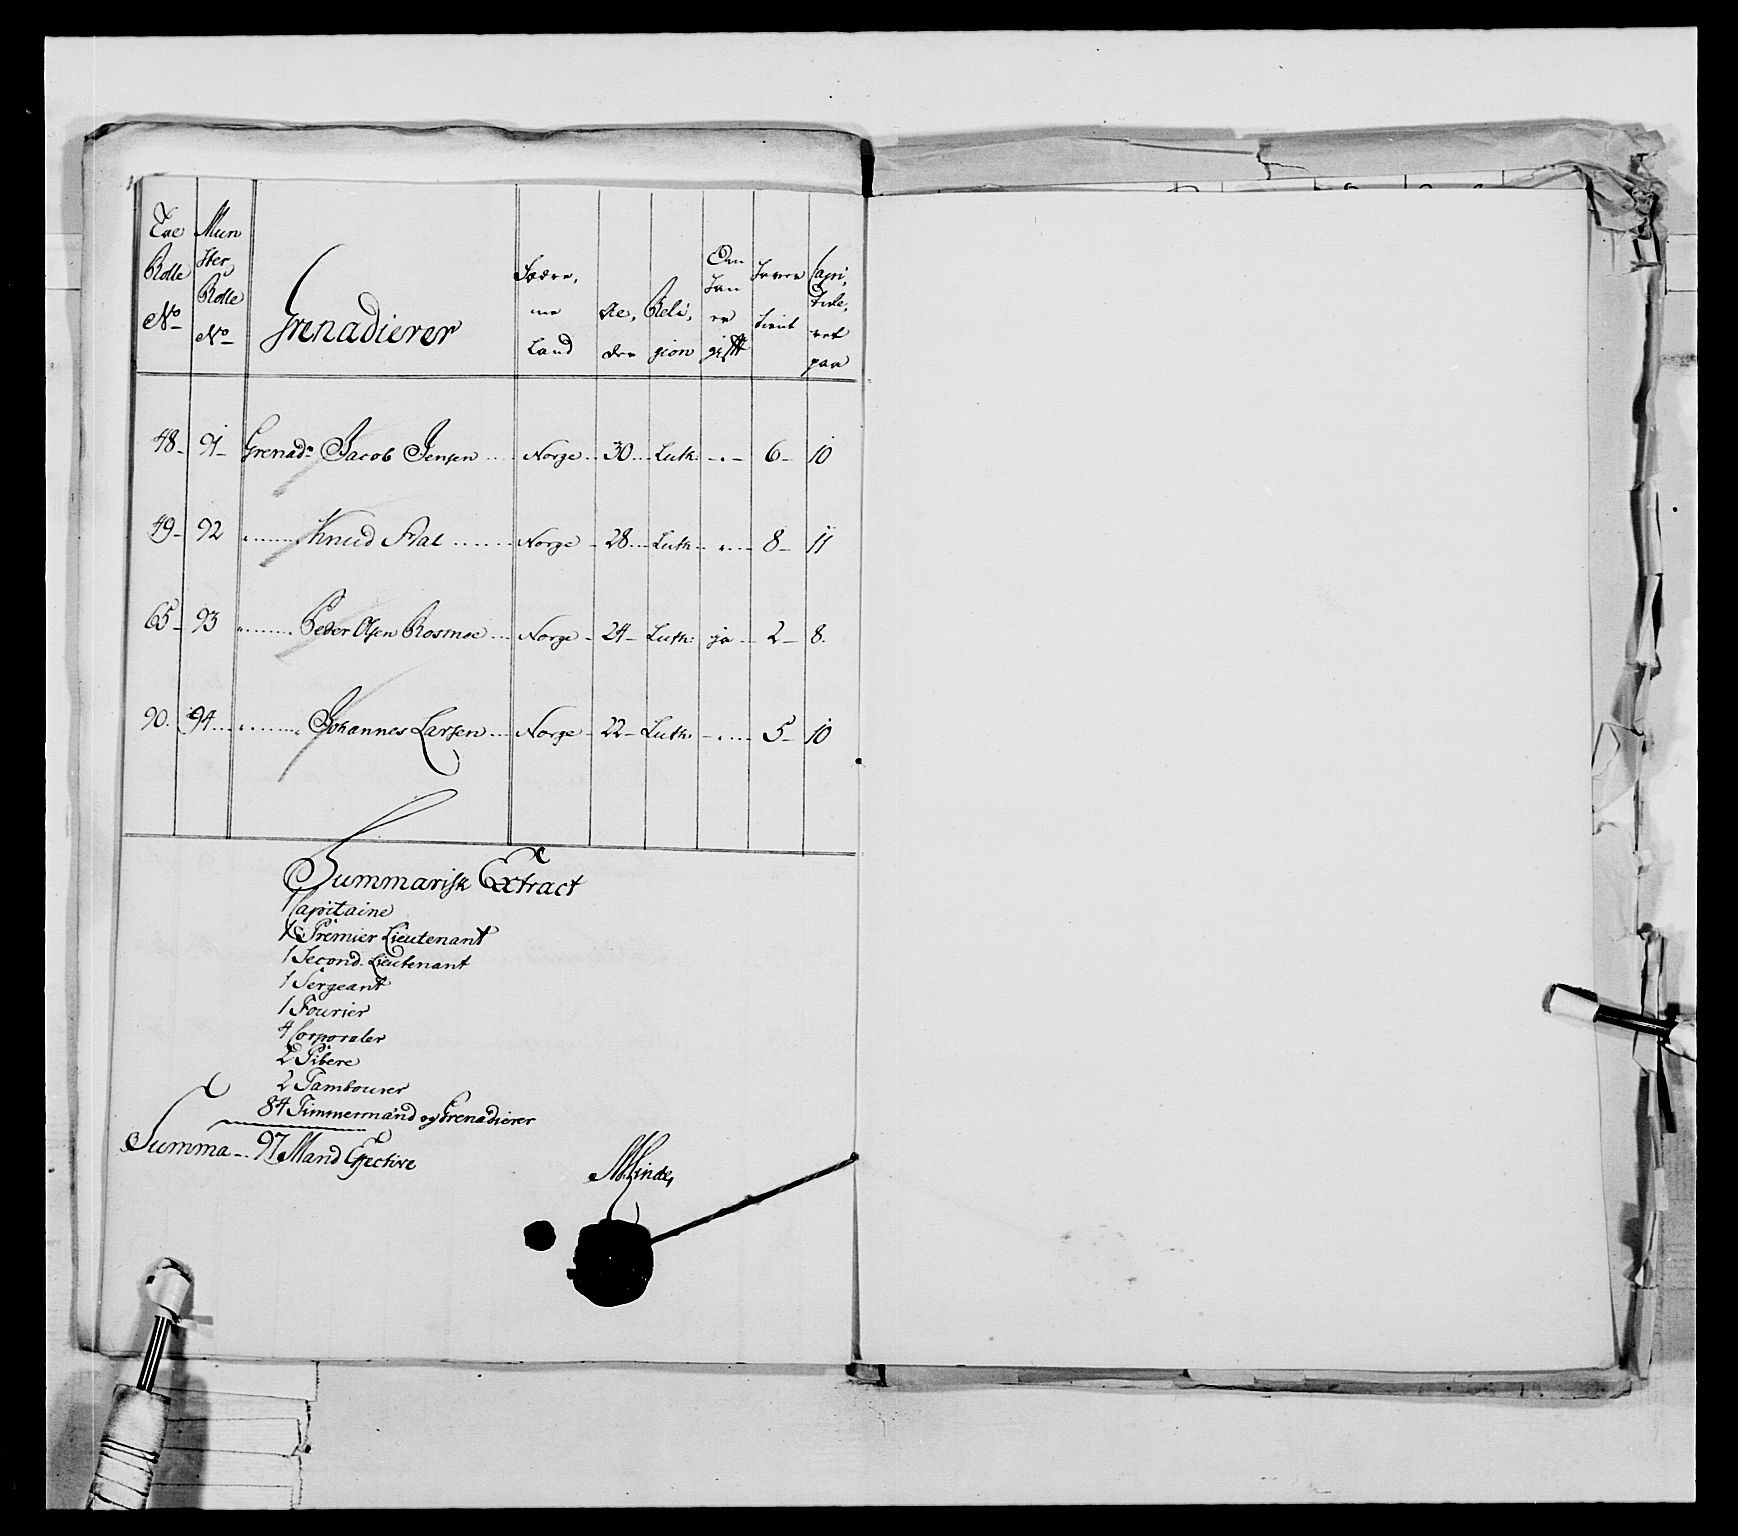 Exe Rolle No
Mun ster Rolle No
Grenadierer
Fædre, ne Land
Al, der
Reli, gion
Om han er gift
Haver tient
Capi, tule, ret paa
48 91 Grenadr Jacob Jensen Norge 30 Luth: 6 10
49 92 " Knud Aal Norge 28 Luth: " 8 11
65 93 " Peder Olsen Rosmoe Norge 24 Luth: ja 2 8.
90. 94 " Johannes Larsen Norge 22 Luth: 5 10
Summarisk Extract
1 Capitaine
1 Premier Lieutenant
1 Second-Lieutenant
1 Sergeant
1 Fourier
4 Corporaler
2 Pibere
2 Tambourer
84 Timmermand og Grenadierer
Summa 97 Mand Effective